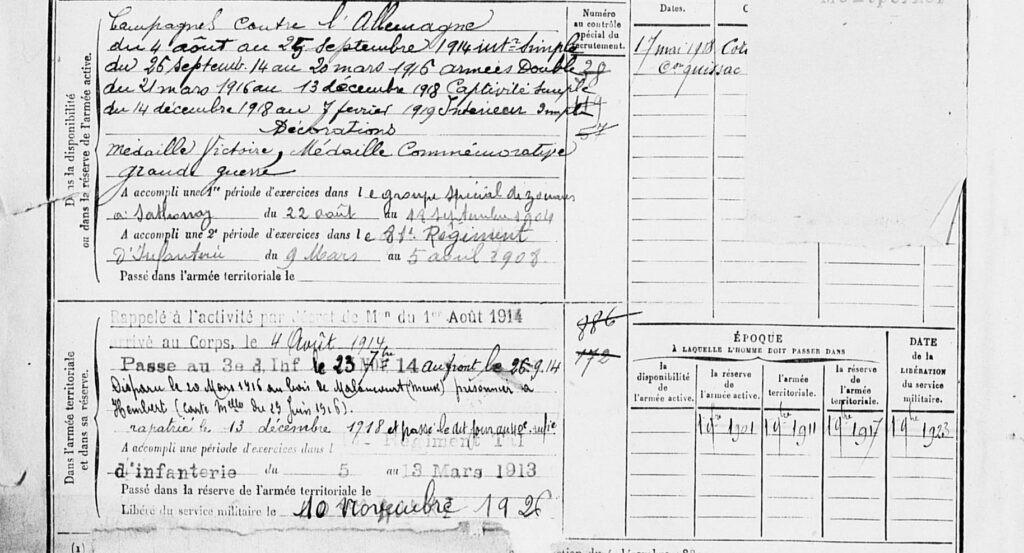 Campagnes contre l'Allemagne
du 4 août au 25 Septembre 1914 intr Simple
du 26 Septemb. 14 au 20 mars 1916 armées Double
du 21 mars 1916 au 13 décembre 1918 Captivité Simple
du 14 décembre 1918 au 7 février 1919 Intérieur Simple
Décorations
Médaille Victoire, Médaille Commémorative
grande guerre
A accompli une 1re période d'exercices dans le groupe spécial de zouaves
à Sathonay du 22 août au septembre 1904
A accompli une 2e période d'exercices dans le 81e Régiment
d'Infanterie du 9 Mars au 5 avril 1908
Passé dans l'armée territoriale le
Dans la disponibilité
ou dans la réserve de l'armée active.
Numéro
au contrôle
spécial du
recrutement.
Dates.
17 mai 1918
Conquissac
Rappelé à l'activité par décret de Mon du 1er Août 1914
arrivé au Corps, le 4 Août 1914
Passe au 3e d'Inf le 23 7bre 14 au front le 26.9.14
Disparu le 20 Mars 1916 au bois de Malancourt (Meuse) prisonnier à
(carte du 23 Juin 1916).
rapatrié le 13 décembre 1918 et passé le dit jour au
A accompli une période d'exercices dans l Régiment Ter
d'infanterie du 5 au 13 Mars 1913
Passé dans la réserve de l'armée territoriale le
Libéré du service militaire le 10 novembre 1926
Dans l'armée territoriale
et dans sa réserve.
886
172
ÉPOQUE
A LAQUELLE L'HOMME DOIT PASSER DANS
la
disponibilité
de
l'armée active.
la réserve
de
l'armée active.
l'armée
territoriale.
la réserve
de l'armée
territoriale.
DATE
de la
LIBÉRATION
du service
militaire.
1901
1911
1917
1923
(1)